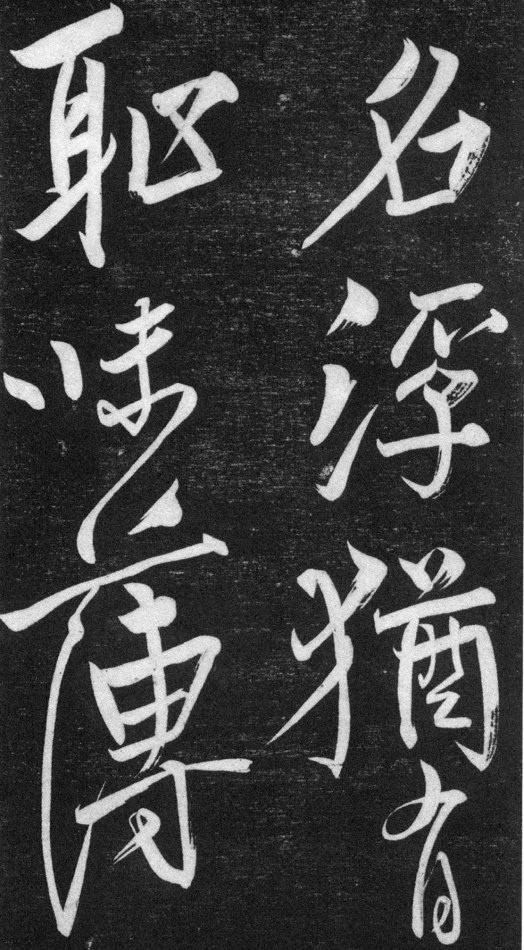 名浮猶有
耻味薄